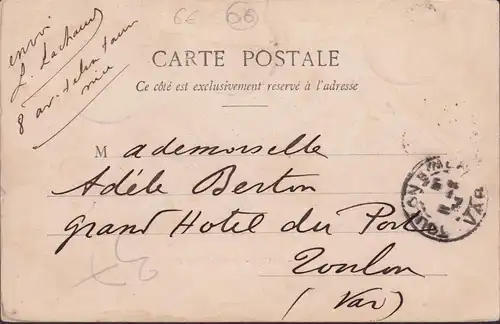 6€
66
envoi
8 av.
nice
CARTE POSTALE
Ce côté est exclusivement reservé à l'adresse
Mademoiselle
Adèle Berton
grand Hotel du Port
Toulon
(Var)
TOULON VAR